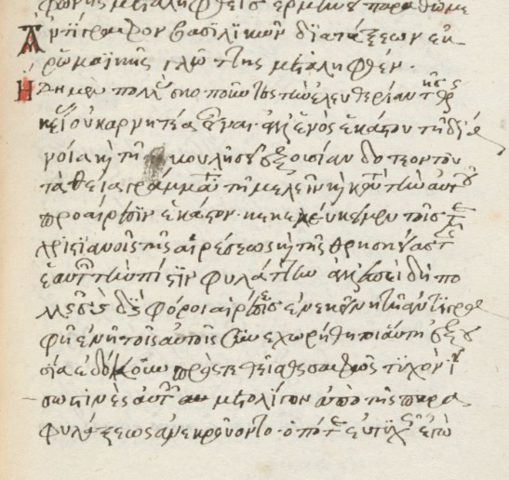 φωνῆς μεταληφθείσ ἑρμηνείας παραθώμε
Ἀντίγραφον βασιλικῶν διατάξεων ἐκ
ῥωμαϊκῆς γλώττης μεταληφθέν.
Ἤδη μὲν πάλαι σκοποῦντες τὴν ἐλευθερίαν τῆς θρησ
κείας οὐκ ἀρνητέαν εἶναι. ἀλλ' ἑνὸς ἑκάστου τῇ δια
νοίᾳ καὶ τῇ βουλήσει ἐξουσίαν δοτέον τοῦ
τὰ θεῖα πράγματα τημελεῖν κατὰ τὴν αὐτοῦ
προαίρεσιν ἕκαστον. κεκελεύκειμεν τοῖς τε
χριστιανοῖς τῆς αἱρέσεως καὶ τῆς θρησκείας τῆς
ἑαυτῶν τὴν πίστιν φυλάττειν. ἀλλ' ἐπειδὴ πο
λλαὶ καὶ διάφοροι αἱρέσεις ἐν ἐκείνῃ τῇ ἀντιγρα
φῇ ἐν ᾗ τοῖς αὐτοῖς συνεχωρήθη ἡ τοιαύτη ἐξου
σία ἐδόκουν προστεθεῖσθαι σαφῶς τυχὸν ἴ
σως τινὲς αὐτῶν μετ' ὀλίγον ἀπὸ τῆς παρα
φυλάξεως ἀνεκρούοντο. ὁπότε εὐτυχῶς ἐγὼ